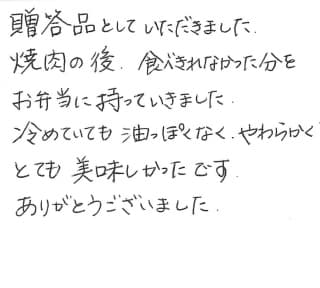 贈答品としていただきました.
焼肉の後、食べきれなかった分を
お弁当に持っていきました.
冷めていても油っぽくなく、やわらかく
とても美味しかったです.
ありがとうございました.